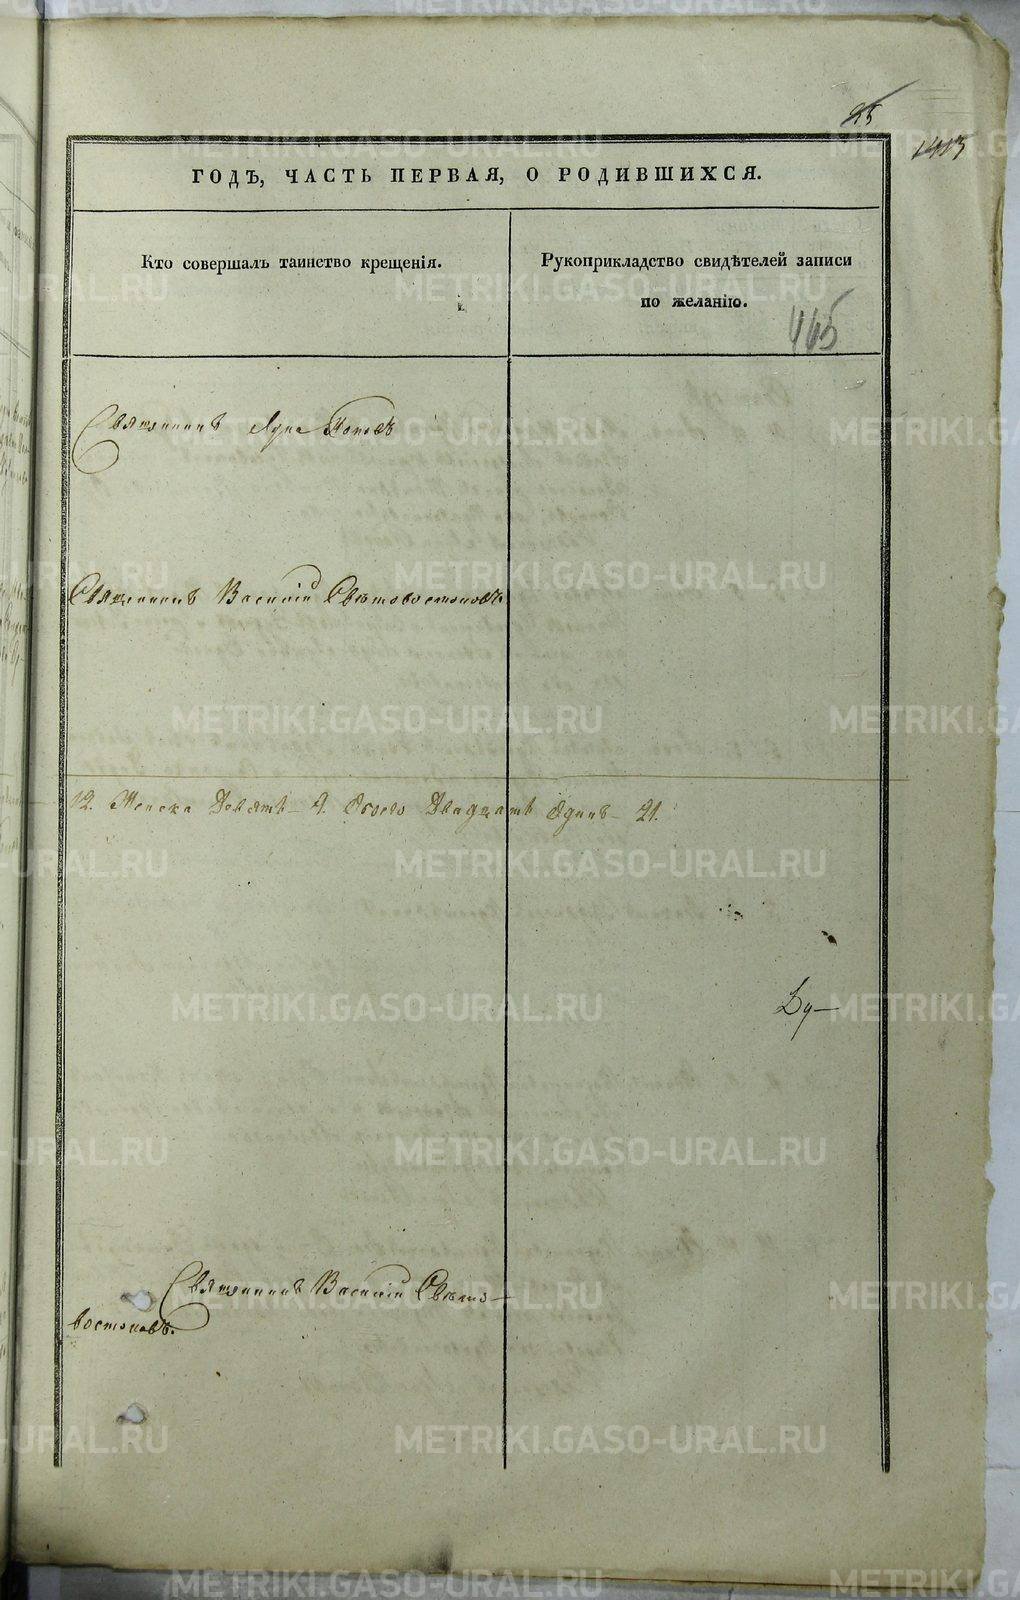 25
1413
ГОДЪ, ЧАСТЬ ПЕРВАЯ, О РОДИВШИХСЯ.
Кто совершалъ таинство крещенія.
Рукоприкладство свидѣтелей записи
по желанію.
445
Священникъ Лука Поповъ
Священникъ Василій Свѣтовостоковъ.
12. Женска Девять 9. Обоего Двадцать Одинъ 21.
Ду-
Священникъ Василій Свѣто-
востоковъ.
METRIKI.GASO-URAL.RU